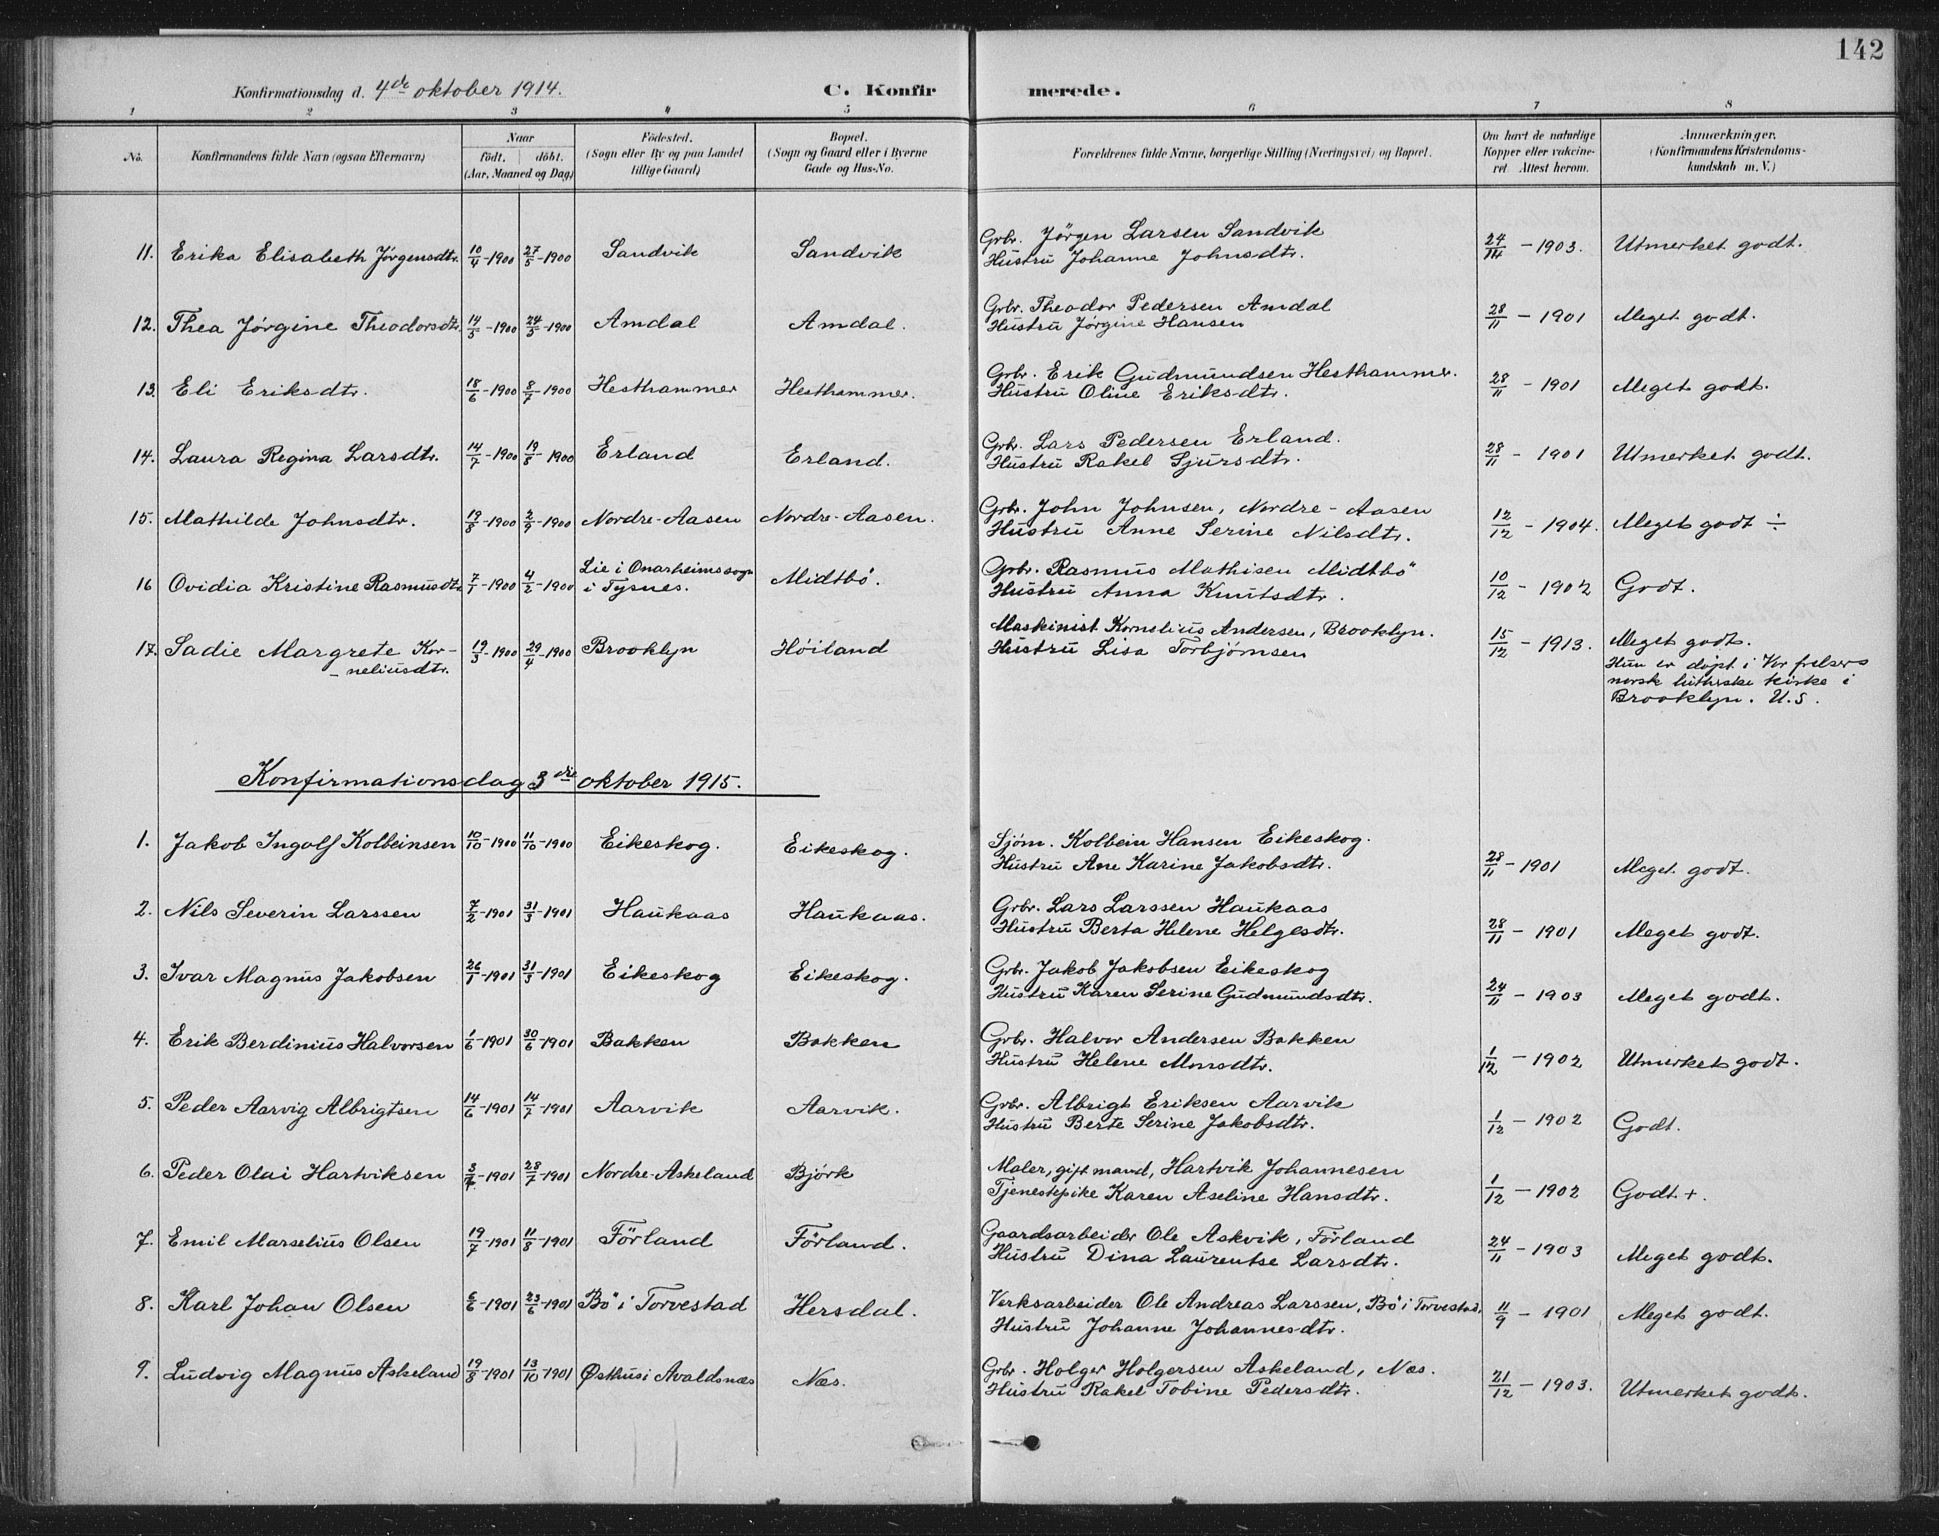 142
Konfirmationsdag d. 4de oktober 1914. C. Konfirmerede.
1 2 3 4 5 6 7 8
No. Konfirmandens fulde Navn (ogsaa Efternavn) Naar födt. döbt. (Aar, Maaned og Dag) Födested. (Sogn eller By og paa Landet tillige Gaard) Bopæl. (Sogn og Gaard eller i Byerne Gade og Hus-No. Forældrenes fulde Navne, borgerlige Stilling (Næringsvei) og Bopæl. Om havt de naturlige Kopper eller vakcineret. Attest herom. Anmærkninger. (Konfirmandens Kristendomskundskab m. V.)
11. Erika Elisabeth Jörgensdtr. 10/4-1900 27/5-1900 Sandvik Sandvik Grbr. Jörgen Larsen Sandvik 24/11-1903. Utmerket godt.
Hustru Johanne Johnsdtr.
12. Thea Jörgine Theodorsdtr. 14/5-1900 24/5-1900 Amdal Amdal. Grbr. Theodor Pedersen Amdal 28/11-1901 Meget godt.
Hustru Jörgine Hansen
13. Eli Eriksdtr. 18/6-1900 8/7-1900 Hesthammer Hesthammer. Grbr. Erik Gudmundsen Hesthammer. 28/11-1901 Meget godt.
Hustru Oline Eriksdtr.
14. Laura Regina Larsdtr. 14/7-1900 19/8-1900 Erland Erland. Grbr. Lars Pedersen Erland. 28/11-1901 Utmerket godt.
Hustru Rakel Sjursdtr.
15. Mathilde Johnsdtr. 19/8-1900 2/9-1900 Nordre-Aasen Nordre-Aasen. Grbr. John Johnsen, Nordre-Aasen 12/12-1904. Meget godt ÷
Hustru Anne Serine Nilsdtr.
16 Ovidia Kristine Rasmusdtr. 7/1-1900 4/2-1900 Lie i Onarheimssogn Midtbö. Grbr. Rasmus Mathisen Midtbö 10/12-1902 Godt.
i Tysnes. Hustru Anna Knutsdtr.
17. Sadie Margrete Kor- 19/3-1900 29/4-1900 Brooklyn Höiland Maskinist Kornelius Andersen, Brooklyn. 15/12-1913. Meget godt.
-neliusdtr. Hustru Lisa Torbjørnsen Hun er døpt i Vor frelsers
norsk lutherske kirke i
Brooklyn. U.S.
Konfirmationsdag 3die oktober 1915.
1. Jakob Ingolf Kolbeinsen 10/10-1900 11/10-1900 Eikeskog. Eikeskog. Sjøm. Kolbein Hansen Eikeskog. 28/11-1901 Meget godt.
Hustru Ane Karine Jakobsdtr.
2. Nils Severin Larssen 7/2-1901 31/3-1901 Haukaas Haukaas. Grbr. Lars Larssen Haukaas 28/11-1901 Meget godt.
Hustru Berta Helene Helgesdtr.
3. Ivar Magnus Jakobsen 26/1-1901 31/3-1901 Eikeskog Eikeskog. Grbr. Jakob Jakobsen Eikeskog 24/11-1903 Meget godt.
Hustru Karen Serine Gudmundsdtr.
4. Erik Berdinius Halvorsen 1/6-1901 30/6-1901 Bakken Bakken Grbr. Halvor Andersen Bakken 1/12-1902 Utmerket godt.
Hustru Helene Monsdtr.
5. Peder Aarvig Albrigtsen 14/6-1901 14/7-1901 Aarvik Aarvik. Grbr. Albrigt Eriksen Aarvik 1/12-1902 Godt.
Hustru Berte Serine Jakobsdtr.
6. Peder Olai Hartviksen -1901 28/7-1901 Nordre-Askeland Björk Maler, gift mand, Hartvik Johannesen 1/12-1902 Godt +.
Tjenestepike Karen Aseline Hansdtr.
7. Emil Marselius Olsen 19/7-1901 11/8-1901 Förland Förland. Gaardsarbeider Ole Askvik, Förland 24/11-1903 Meget godt.
Hustru Dina Laurentse Larsdtr.
8. Karl Johan Olsen 6/6-1901 23/6-1901 Bö i Torvestad Hersdal. Verksarbeider Ole Andreas Larssen, Bö i Torvestad. 11/9-1901 Meget godt.
Hustru Johanne Johannesdtr.
9. Ludvig Magnus Askeland 19/8-1901 13/10-1901 Østhus i Avaldsnæs Næs. Grbr. Holger Holgersen Askeland, Næs. 21/12-1903. Utmerket godt.
Hustru Rakel Tobine Pedersdtr.